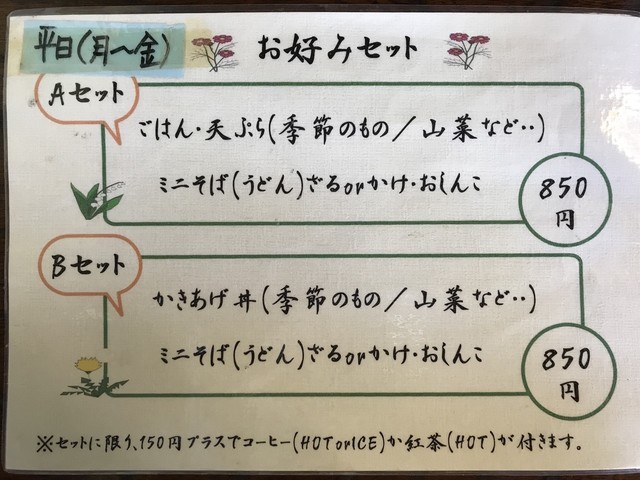 平日(月～金)
お好みセット
Aセット
ごはん・天ぷら(季節のもの/山菜など‥)
ミニそば(うどん)ざるorかけ・おしんこ
850
円
Bセット
かきあげ丼(季節のもの/山菜など‥)
ミニそば(うどん)ざるorかけ・おしんこ
850
円
※セットに限り、150円プラスでコーヒー(HOTorICE)か紅茶(HOT)が付きます。